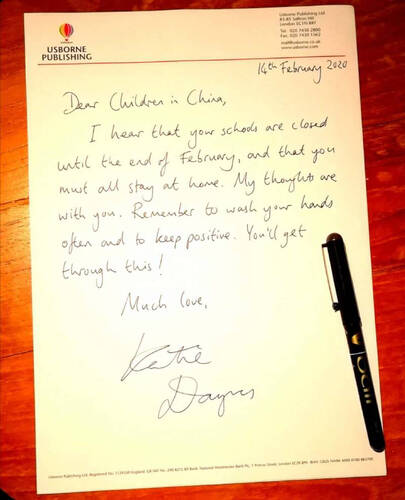 USBORNE
PUBLISHING
Usborne Publishing Ltd
83-85 Saffron Hill
London EC1N 8RT
Tel: 020 7430 2800
Fax: 020 7430 1562
mail@usborne.co.uk
www.usborne.com
14th February 2020
Dear Children in China,
I hear that your schools are closed
until the end of February, and that you
must all stay at home. My thoughts are
with you. Remember to wash your hands
often and to keep positive. You'll get
through this!
Much love,
Katie
Daynes
Usborne Publishing Ltd. Registered No. 1139109 England.